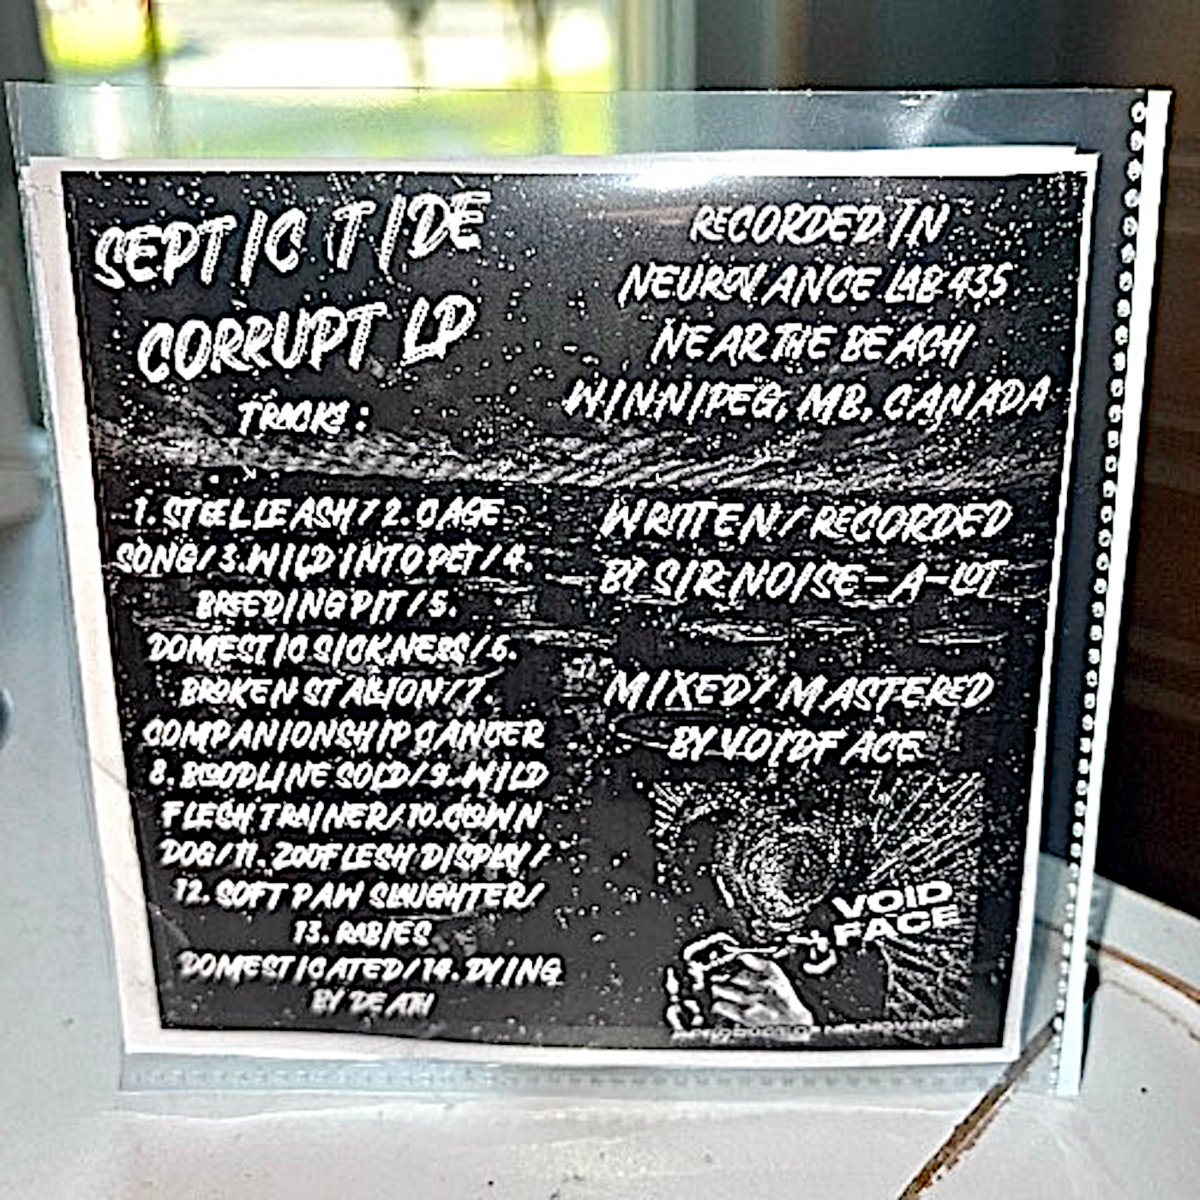 SEPTIC TIDE
CORRUPT LP
TRACKS:
1. STEEL LEASH / 2. CAGE
SONG / 3. WILD INTO PET / 4.
BREEDING PIT / 5.
DOMESTIC SICKNESS / 6.
BROKEN STALLION / 7.
COMPANIONSHIP CANCER
8. BLOODLINE SOLD / 9. WILD
FLESH TRAINER / 10. CLOWN
DOG / 11. ZOO FLESH DISPLAY /
12. SOFT PAW SLAUGHTER /
13. RABIES
DOMESTICATED / 14. DYING
BY DEATH
RECORDED IN
NEUROVANCE LAB 435
NEAR THE BEACH
WINNIPEG, MB, CANADA
WRITTEN / RECORDED
BY SIR NOISE-A-LOT
MIXED / MASTERED
BY VOIDFACE
VOID
FACE
A PRODUCT OF NEUROVANCE